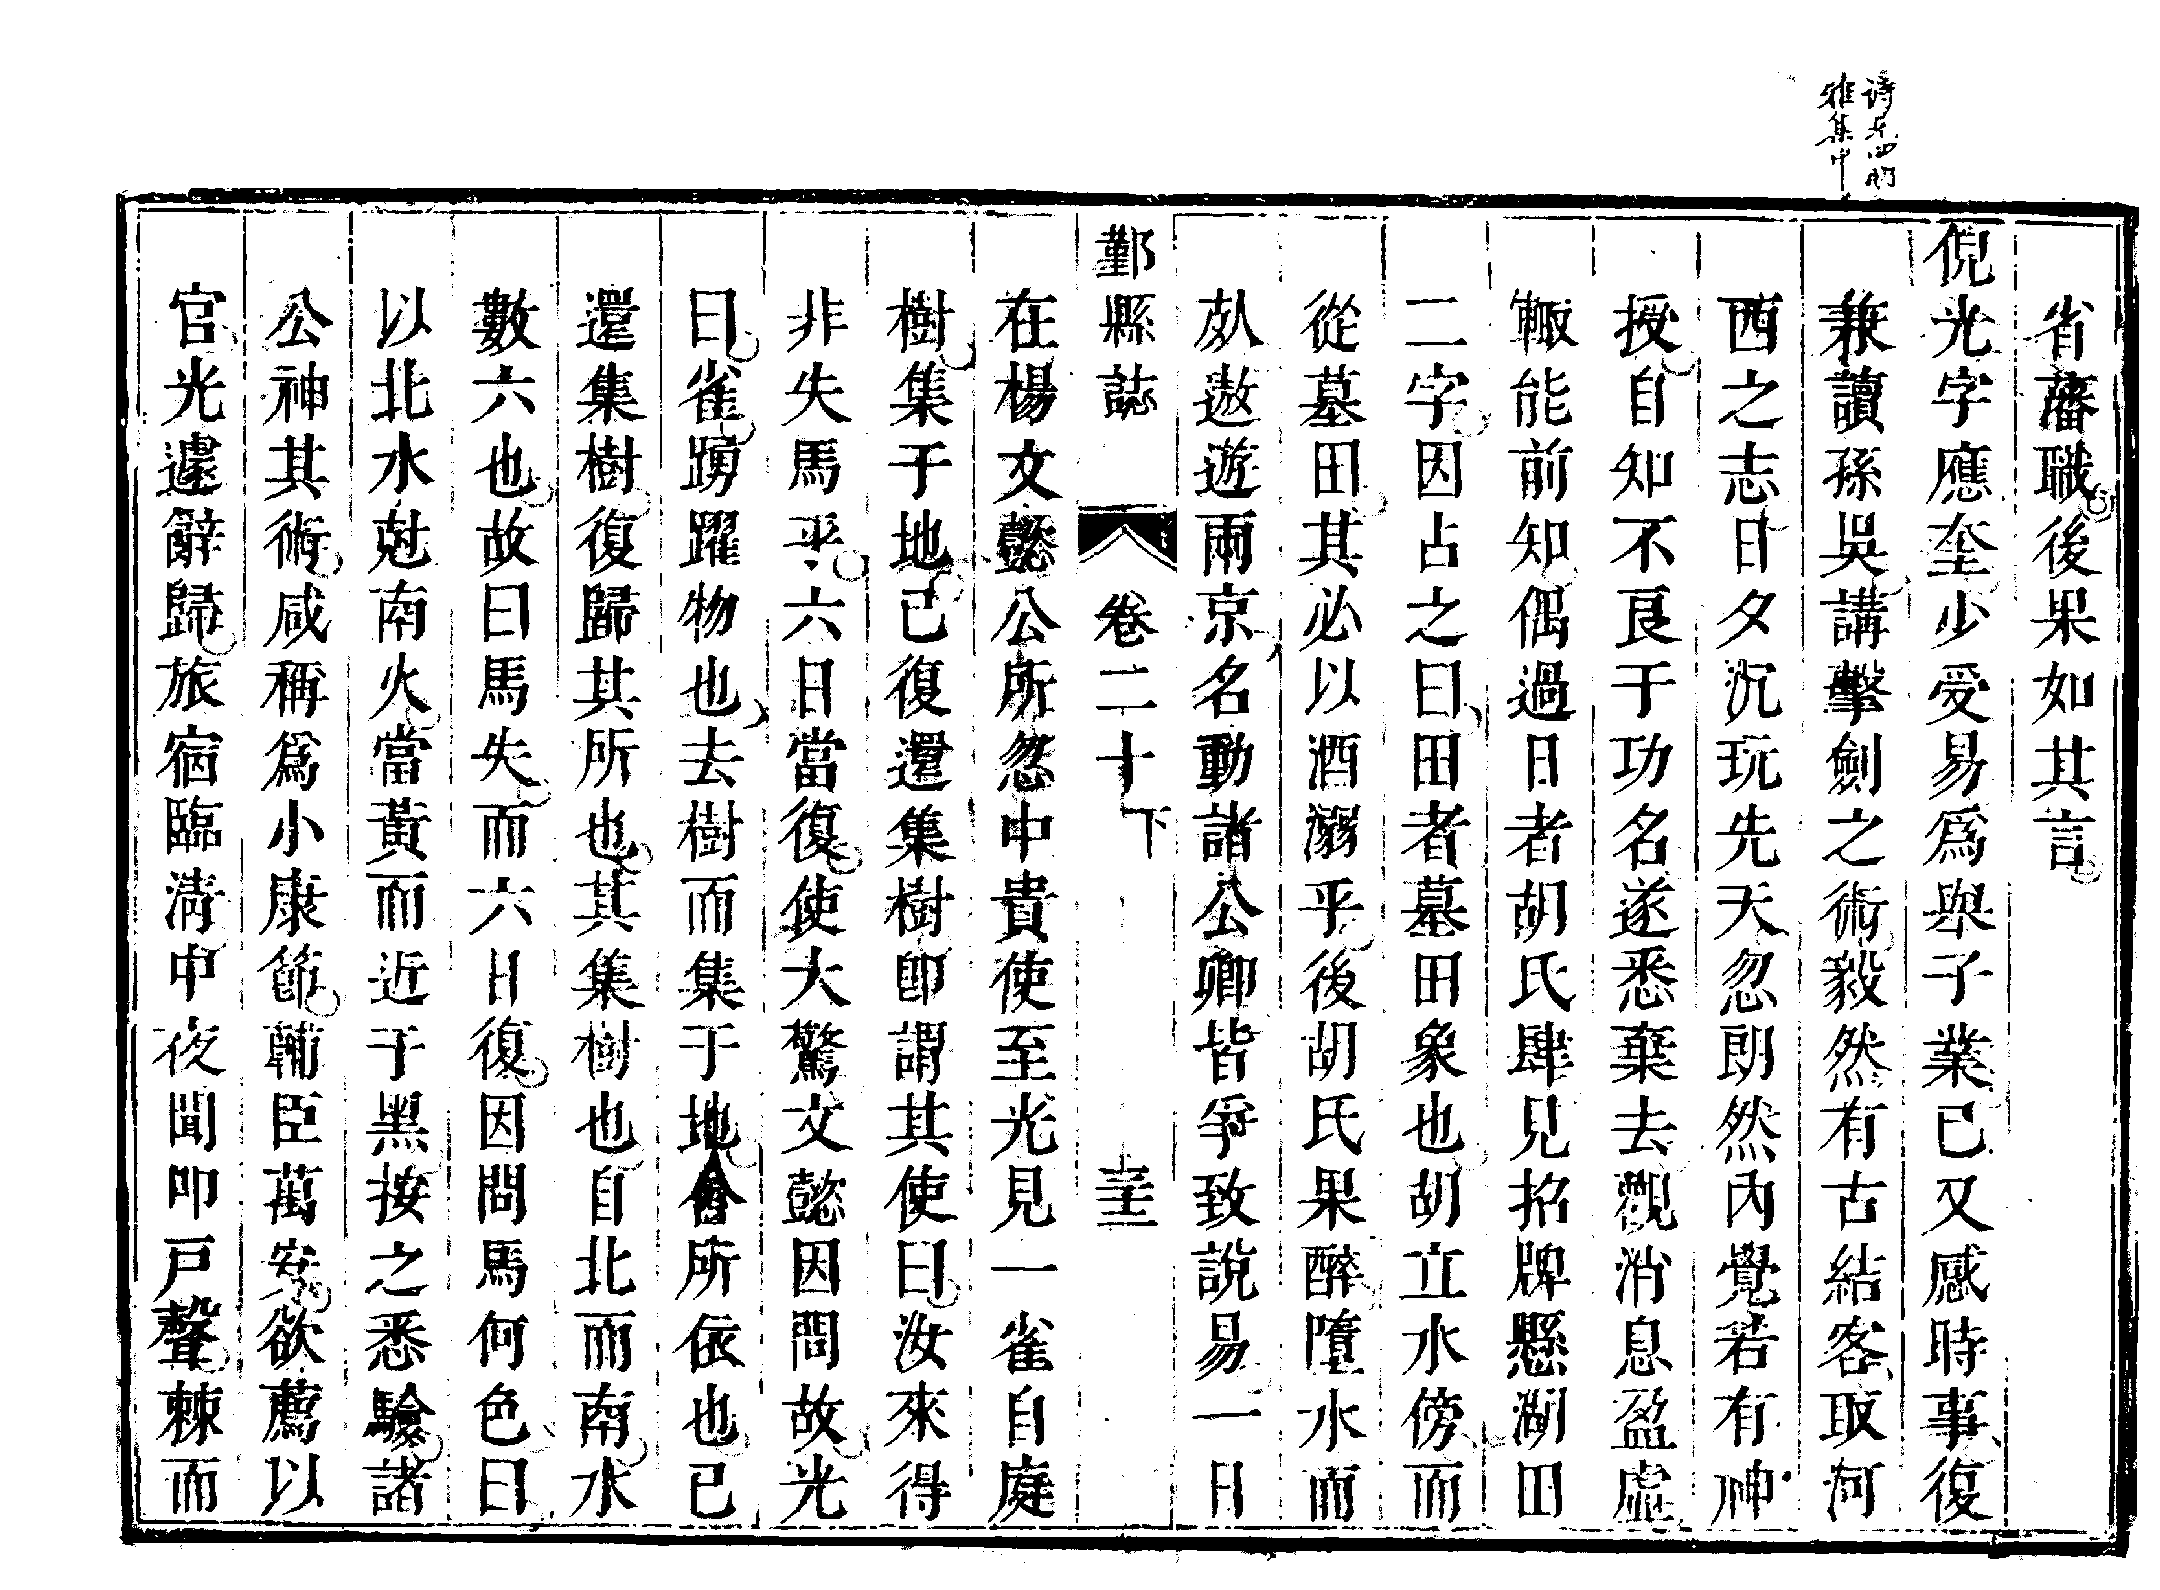 詩見四明
雅集中
省藩職後果如其言
倪光字應奎少受易爲舉子業已又感時事復
兼讀孫吳講擊劍之術毅然有古結客取河
西之志日夕沉玩先天忽朗然內覺若有神
授自知不良于功名遂悉棄去觀消息盈虛
輙能前知偶過日者胡氏肆見招牌懸湖田
二字因占之曰田者墓田象也胡立水傍而
從墓田其必以酒溺乎後胡氏果醉墮水而
敀遨遊兩京名動諸公卿皆爭致說易一日
鄞縣誌 卷二十下 三十三
在楊文懿公所忽中貴使至光見一雀自庭
樹集于地已復還集樹卽謂其使曰汝來得
非失馬乎六日當復使大驚文懿因問故光
曰雀踴躍物也去樹而集于地會所依也已
還集樹復歸其所也其集樹也自北而南水
數六也故曰馬失而六日復因問馬何色曰
以北水尅南火當黃而近于黑按之悉驗諸
公神其術咸稱爲小康節輔臣萬安欲薦以
官光遽辭歸旅宿臨淸中夜聞叩戸聲棘而